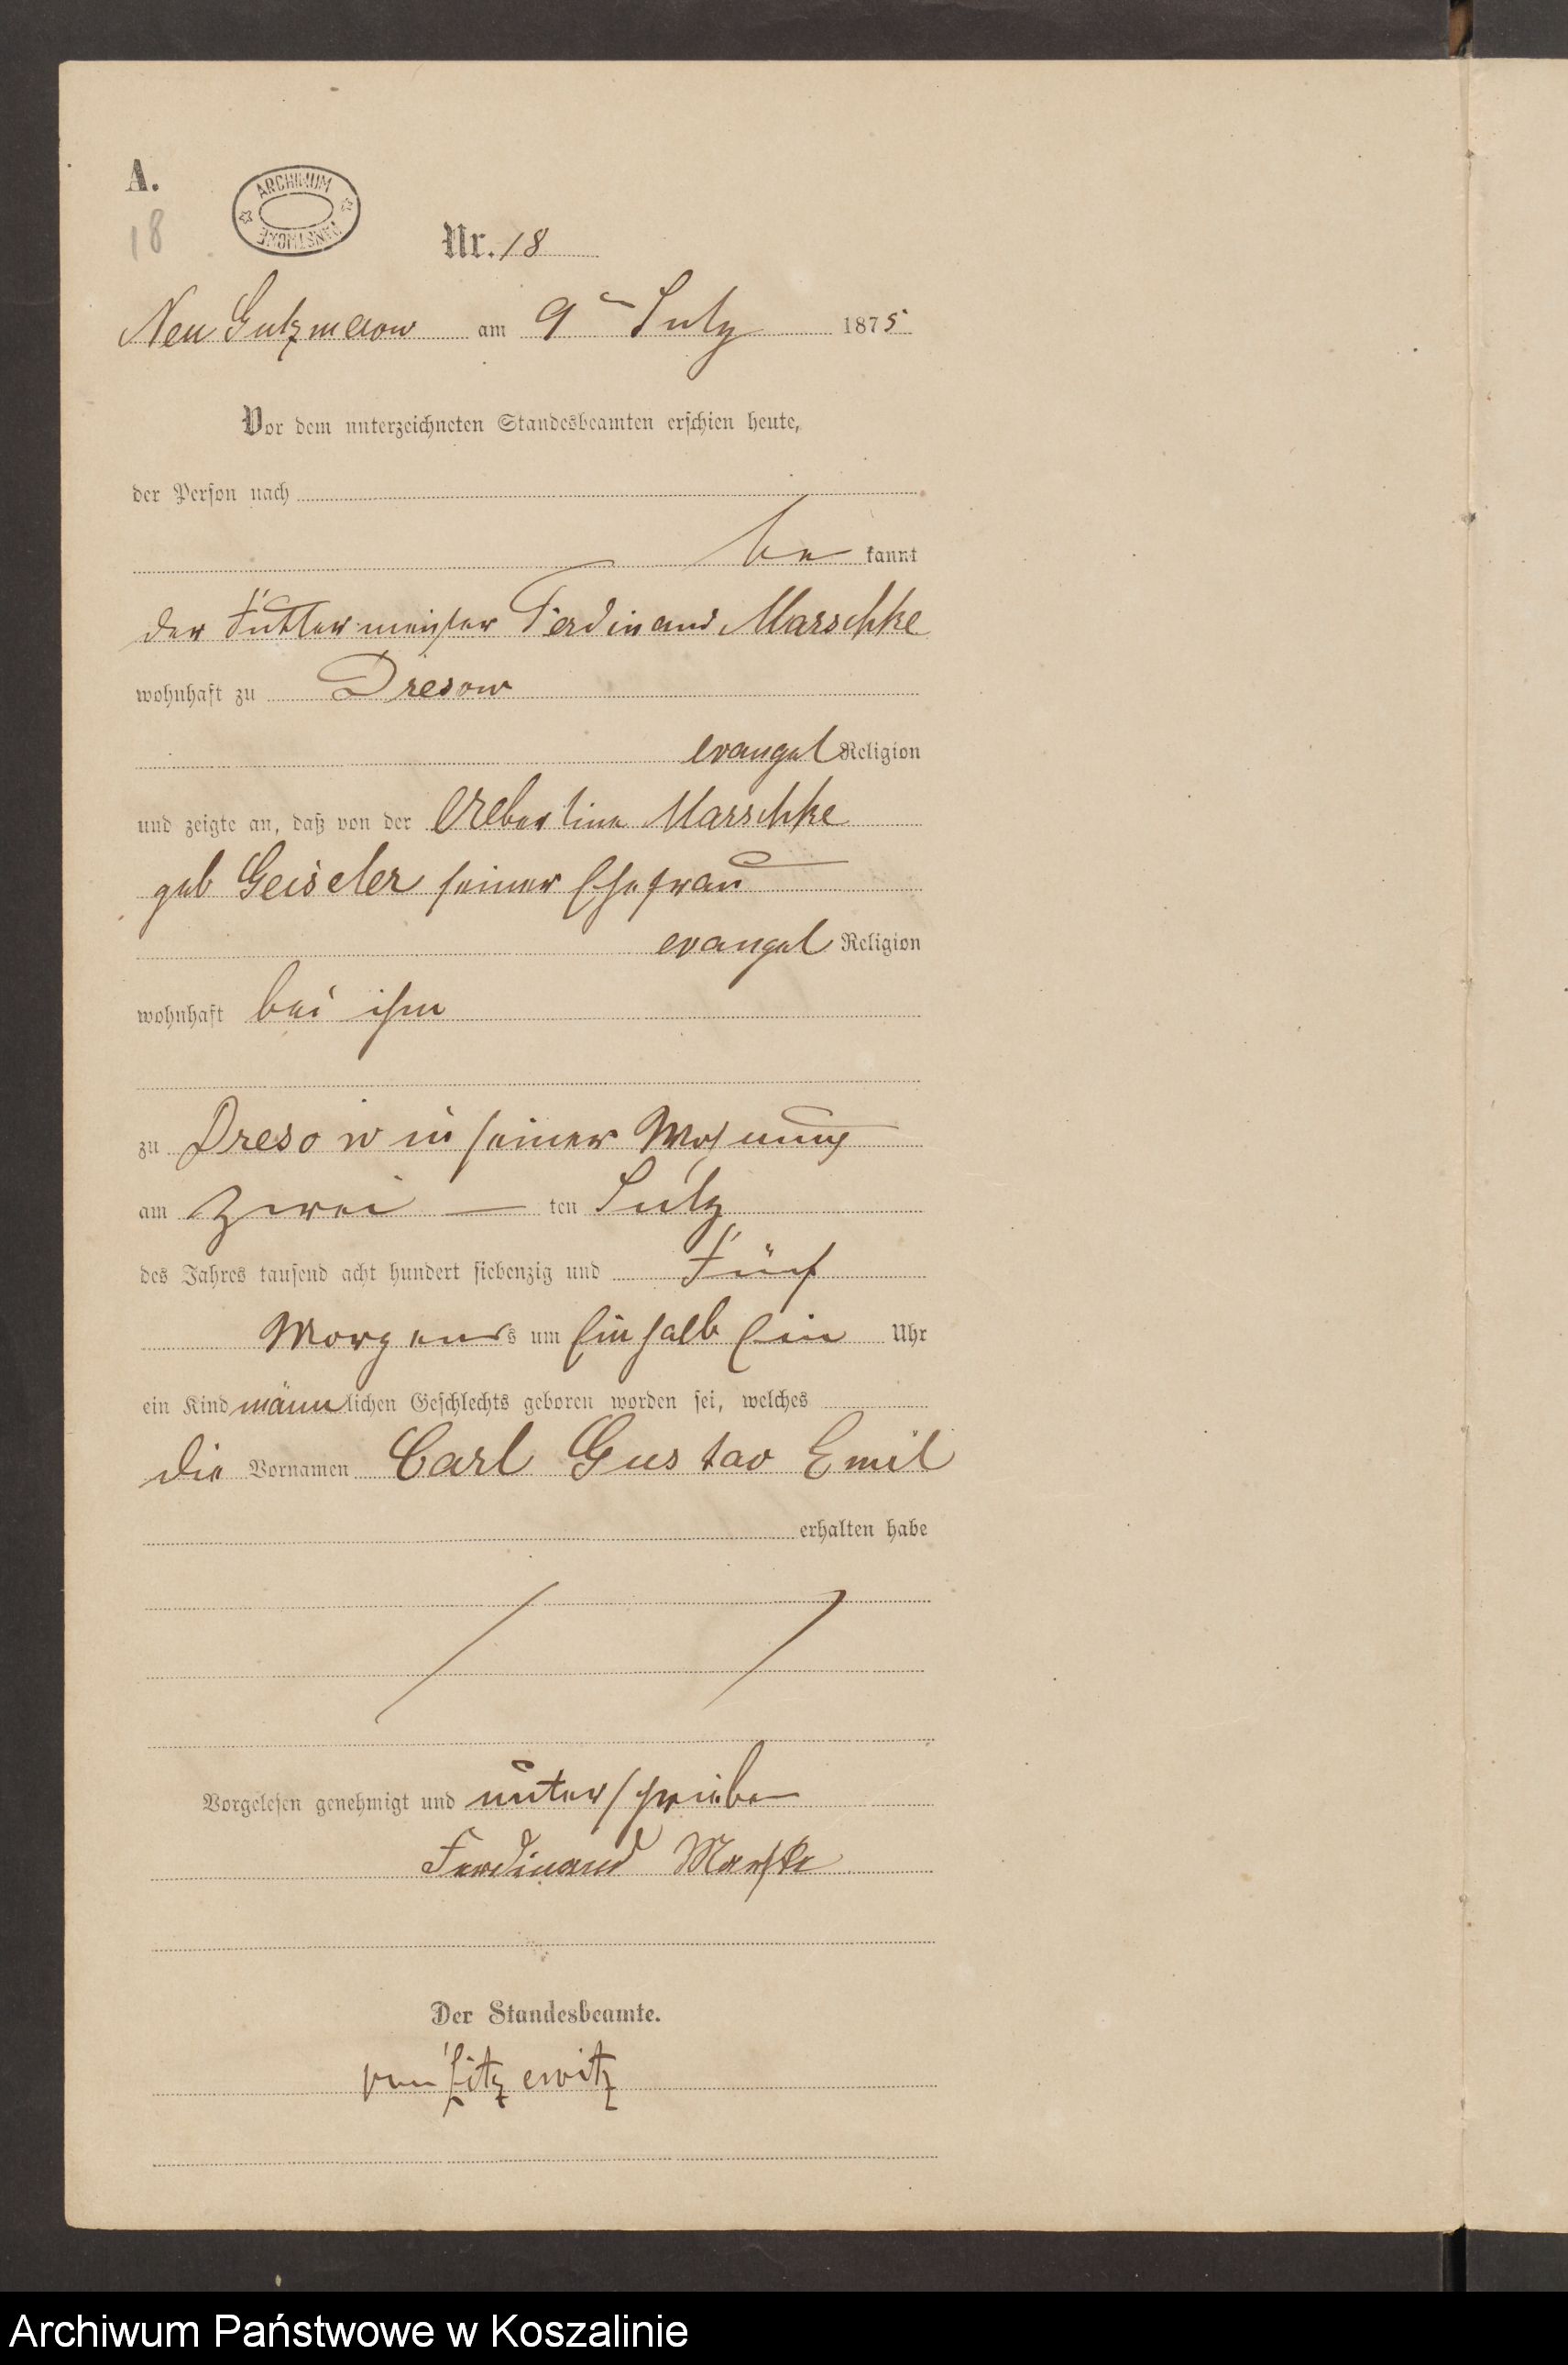 A.
18
ARCHIWUM PAŃSTWOWE
Nr. 18
Neu Gutzmerow am 9ᵗᵉⁿ July 1875
Vor dem unterzeichneten Standesbeamten erschien heute,
der Person nach
be kannt
der Futtermeister Ferdinand Marschke
wohnhaft zu Dresow
evangel Religion
und zeigte an, daß von der Albertine Marschke
geb Geiseler seiner Ehefrau
evangel Religion
wohnhaft bei ihm
zu Dresow in seiner Wohnung
am zwei — ten July
des Jahres tausend acht hundert siebenzig und Fünf
Morgens um Einhalb Ein Uhr
ein Kind männlichen Geschlechts geboren worden sei, welches
die Vornamen Carl Gustav Emil
erhalten habe
Vorgelesen genehmigt und unterschrieben
Ferdinand Marschke
Der Standesbeamte.
von Zitzewitz
Archiwum Państwowe w Koszalinie